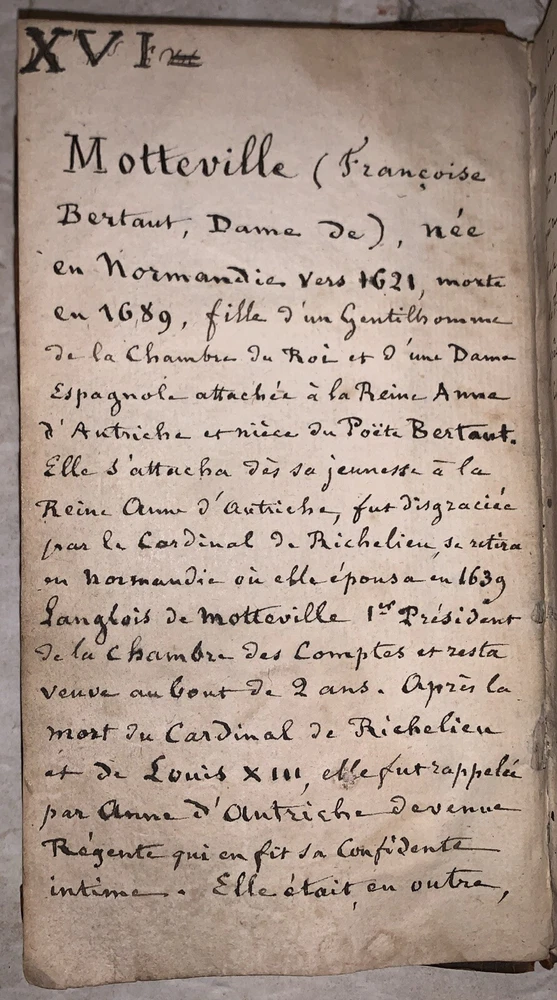 XVI
Motteville (Françoise
Bertaut, Dame de), née
en Normandie vers 1621, morte
en 1689, fille d'un Gentilhomme
de la Chambre du Roi et d'une Dame
Espagnole attachée à la Reine Anne
d'Autriche et nièce du Poëte Bertaut.
Elle s'attacha dès sa jeunesse à la
Reine Anne d'Autriche, fut disgraciée
par le Cardinal de Richelieu, se retira
en Normandie où elle épousa en 1639
Langlois de Motteville 1er Président
de la Chambre des Comptes et resta
veuve au bout de 2 ans. Après la
mort du Cardinal de Richelieu
et de Louis XIII, elle fut rappelée
par Anne d'Autriche devenue
Régente qui en fit sa Confidente
intime. Elle était, en outre,